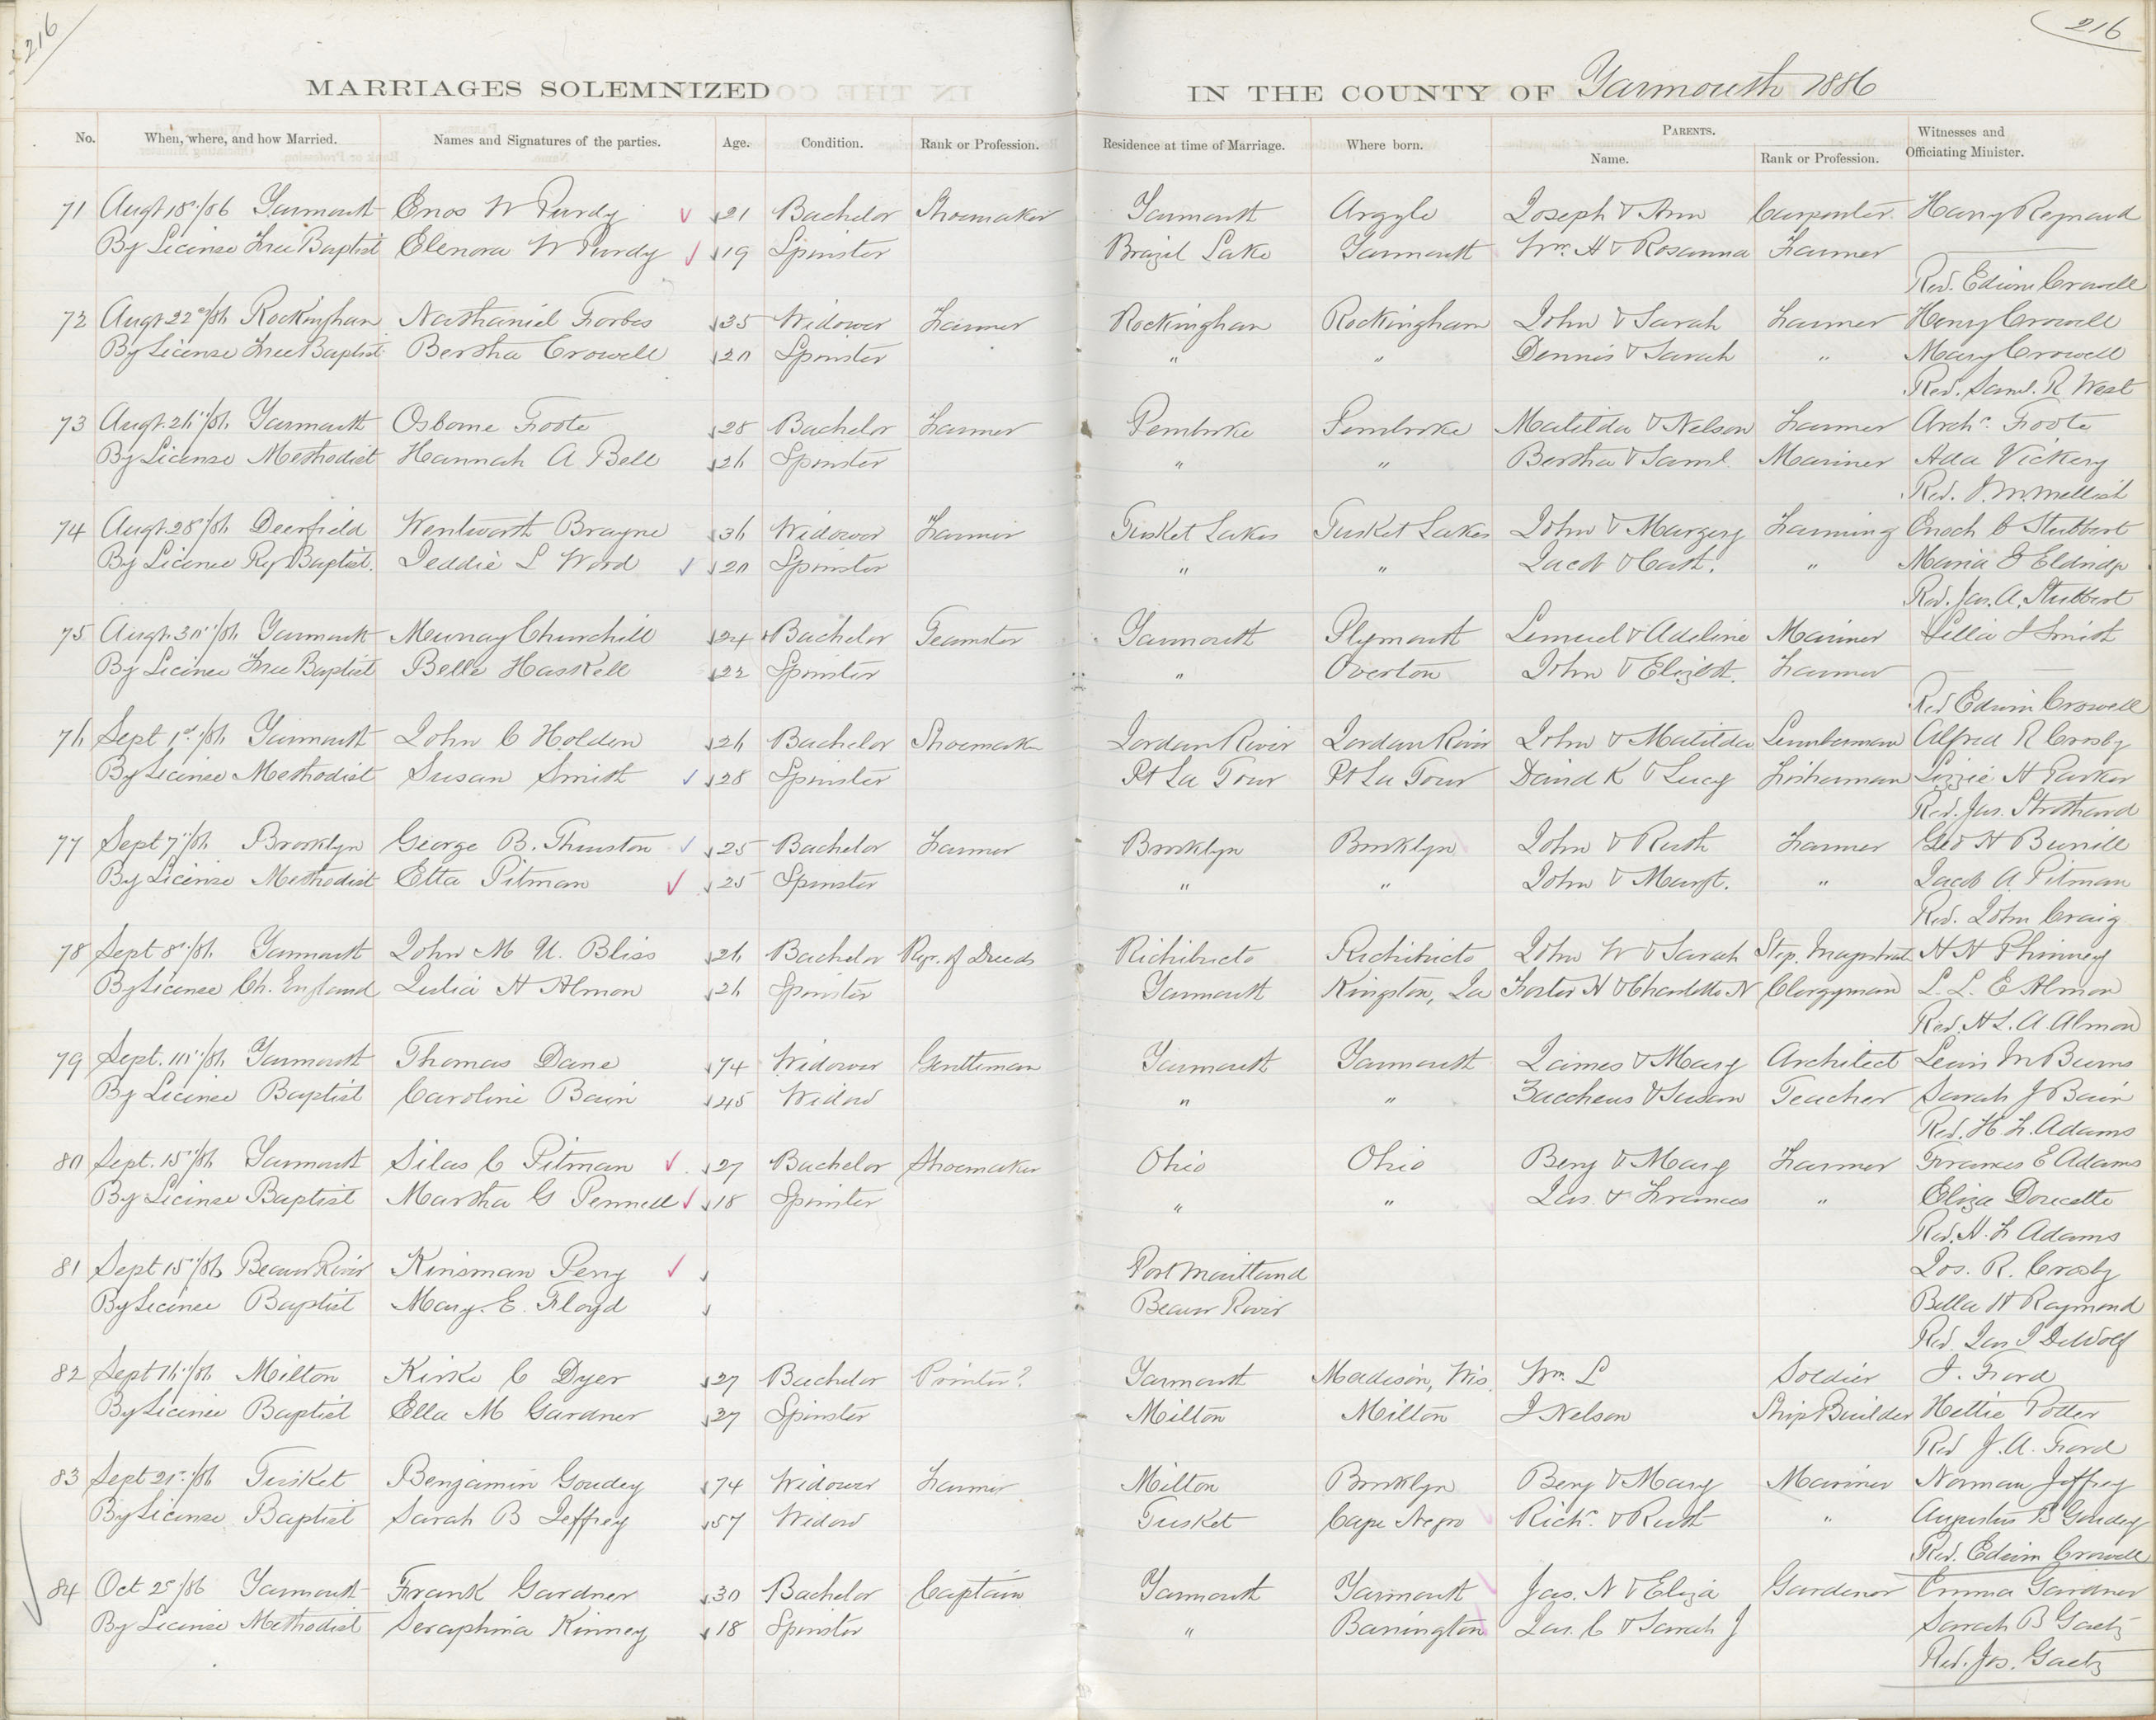 216
216
MARRIAGES SOLEMNIZED IN THE COUNTY OF Yarmouth 1886
No. When, where, and how Married. Names and Signatures of the parties. Age. Condition. Rank or Profession. Residence at time of Marriage. Where born. PARENTS. Name. Rank or Profession. Witnesses and Officiating Minister.
71 Augt 18"/86 Yarmouth Enos W Purdy 21 Bachelor Shoemaker Yarmouth Argyle Joseph & Ann Carpenter Harry Reynard
By License Free Baptist Elenora W Purdy 19 Spinster Brazil Lake Yarmouth Wm. H & Rosanna Farmer
Rev. Edwin Crowell
72 Augt 22nd/86 Rockingham Nathaniel Forbes 35 Widower Farmer Rockingham Rockingham John & Sarah Farmer Henry Crowell
By License Free Baptist Bertha Crowell 20 Spinster " " Dennis & Sarah " Mary Crowell
Rev. Saml. R West
73 Augt. 26"/86 Yarmouth Osborne Foote 28 Bachelor Farmer Pembroke Pembroke Matilda & Nelson Farmer Archd. Foote
By License Methodist Hannah A Bell 26 Spinster " " Bertha & Saml. Mariner Ada Vickery
Rev. J. M. Mellish
74 Augt 28"/86 Deerfield Wentworth Brayne 36 Widower Farmer Tusket Lakes Tusket Lakes John & Margery Farming Enoch C Stubbert
By Licence Rg Baptist. Jeddie L Word 20 Spinster " " Jacob & Cath. " Maria J Eldridge
Rev. Jas. A. Stubbert
75 Augt. 30"/86 Yarmouth Murray Churchill 24 Bachelor Teamster Yarmouth Plymouth Lemuel & Adeline Mariner Lillia J Smith
By Licence Free Baptist Belle Haskell 22 Spinster " Overton John & Elizbt. Farmer
Rev Edwin Crowell
76 Sept 1st/86 Yarmouth John C Holden 26 Bachelor Shoemaker Jordan River Jordan River John & Matilda Lumberman Alfred R Crosby
By License Methodist Susan Smith 28 Spinster Pt La Tour Pt La Tour David K & Lucy Fisherman Lizzie H Parker
Rev. Jas. Strothard
77 Sept 7"/86 Brooklyn George B. Thurston 25 Bachelor Farmer Brooklyn Brooklyn John & Ruth Farmer Geo H Burrill
By License Methodist Etta Pitman 25 Spinster " " John & Margt. " Jacob A Pitman
Rev. John Craig
78 Sept 8"/86 Yarmouth John M U. Bliss 26 Bachelor Regr. of Deeds Richibucto Richibucto John W & Sarah Stip. Magistrate H H Phinney
By License Ch. England Julia H Almon 26 Spinster Yarmouth Kingston, Ja Foster H & Charlotte N Clergyman L. L. E Almon
Rev. H L. A. Almon
79 Sept. 10"/86 Yarmouth Thomas Dane 74 Widower Gentleman Yarmouth Yarmouth James & Mary Architect Lewis M Burns
By Licence Baptist Caroline Bain 45 Widow " " Zaccheus & Susan Teacher Sarah J Bain
Rev. H. F. Adams
80 Sept. 15"/86 Yarmouth Silas C Pitman 27 Bachelor Shoemaker Ohio Ohio Benj & Mary Farmer Frances E Adams
By License Baptist Martha G Pennell 18 Spinster " " Jas. & Frances " Eliza Doucette
Rev. H. F Adams
81 Sept 15"/86 Beaver River Kinsman Perry Port Maitland Jos. R. Crosby
By Licence Baptist Mary. E. Floyd Beaver River Bella H Raymond
Rev. Jas I DeWolf
82 Sept 16"/86 Milton Kirke C Dyer 27 Bachelor Printer? Yarmouth Madison, Wis. Wm. L Soldier J. Ford
By Licence Baptist Ella M Gardner 37 Spinster Milton Milton J Nelson Ship Builder Hettie Potter
Rev J. A. Ford
83 Sept 21st/86 Tusket Benjamin Goudey 74 Widower Farmer Milton Brooklyn Benj & Mary Mariner Norman Jeffrey
By License Baptist Sarah B Jeffrey 57 Widow Tusket Cape Negro Richd. & Ruth " Augustus B Goudey
Rev. Edwin Crowell
84 Oct 2d/86 Yarmouth Frank Gardner 30 Bachelor Captain Yarmouth Yarmouth Jas. N & Eliza Gardener Emma Gardner
By License Methodist Seraphina Kinney 18 Spinster " Barrington Jas. C & Sarah J Sarah B Gaetz
Rev. Jos. Gaetz